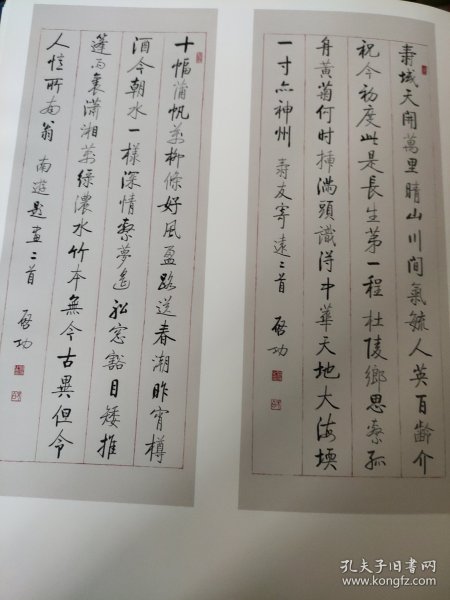 壽域天開萬里晴山川間氣毓人英百齡介
祝今初度此是長生第一程杜陵鄉思縈孤
舟黃菊何時插滿頭識得中華天地大海堧
一寸亦神州 壽友寄遠二首 啓功
十幅蒲帆萬柳條好風盈路送春潮昨宵樽
酒今朝水一樣深情縈夢遙船窗豁目矮推
篷雨裹瀟湘萬綠濃水竹本無今古異但令
人憶所南翁 南遊題畫二首 啓功
孔夫子旧书网
www.kongfz.com